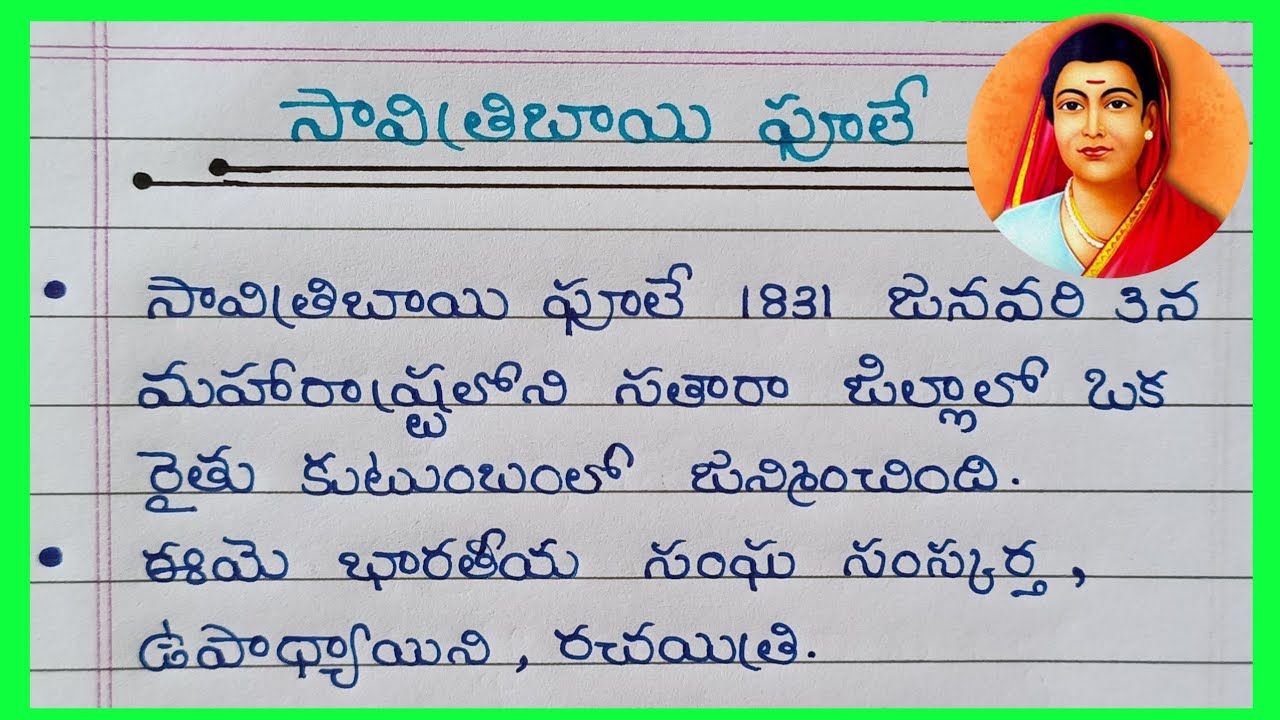 సావిత్రిబాయి ఫూలే
• సావిత్రిబాయి ఫూలే 1831 జనవరి 3న
మహారాష్ట్రలోని సతారా జిల్లాలో ఒక
రైతు కుటుంబంలో జన్మించింది.
• ఈమె భారతీయ సంఘ సంస్కర్త,
ఉపాధ్యాయిని, రచయిత్రి.